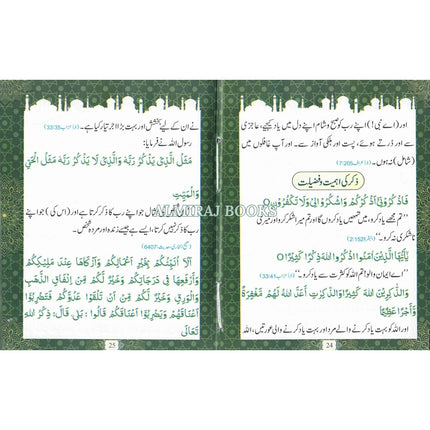 اور (اے نبی!) اپنے رب کو صبح و شام اپنے دل میں یاد کیجیے، عاجزی
سے اور ڈرتے ہوئے، پست اور ہلکی آواز سے۔ اور آپ غافلوں میں
(شامل) نہ ہوں۔
ذکر کی اہمیت و فضیلت
فَاذْكُرُوْنِيْٓ اَذْكُرْكُمْ وَاشْكُرُوْا لِيْ وَلَا تَكْفُرُوْنِ
”تم مجھے یاد کرو، میں تمھیں یاد کروں گا اور تم میرا شکر کرو اور میری
ناشکری نہ کرو۔“ 2:152
يٰٓاَيُّهَا الَّذِيْنَ اٰمَنُوا اذْكُرُوا اللّٰهَ ذِكْرًا كَثِيْرًا
”اے ایمان والو! تم اللہ کو کثرت سے یاد کرو۔“ 33:41
وَالذّٰكِرِيْنَ اللّٰهَ كَثِيْرًا وَّالذّٰكِرٰتِ اَعَدَّ اللّٰهُ لَهُمْ مَّغْفِرَةً
وَّاَجْرًا عَظِيْمًا
اور اللہ کو بہت یاد کرنے والے مرد اور بہت یاد کرنے والی عورتیں، اللہ
24
نے ان کے لیے بخشش اور بہت بڑا اجر تیار کیا ہے۔ 33:35
رسول اللہ نے فرمایا:
مَثَلُ الَّذِيْ يَذْكُرُ رَبَّهٗ وَالَّذِيْ لَا يَذْكُرُ رَبَّهٗ مَثَلُ الْحَيِّ
وَالْمَيِّتِ
جو اپنے رب کا ذکر کرتا ہے اور (اس کی) جو اپنے
رب کا ذکر نہیں کرتا، ایسے ہے جیسے زندہ اور مردہ شخص۔
6407
اَلَا اُنَبِّئُكُمْ بِخَيْرِ اَعْمَالِكُمْ وَاَزْكَاهَا عِنْدَ مَلِيْكِكُمْ
وَاَرْفَعِهَا فِيْ دَرَجَاتِكُمْ وَخَيْرٌ لَّكُمْ مِّنْ اِنْفَاقِ الذَّهَبِ
وَالْوَرِقِ وَخَيْرٌ لَّكُمْ مِّنْ اَنْ تَلْقَوْا عَدُوَّكُمْ فَتَضْرِبُوْا
اَعْنَاقَهُمْ وَيَضْرِبُوْا اَعْنَاقَكُمْ قَالُوْا: بَلٰى، قَالَ: ذِكْرُ اللّٰهِ
تَعَالٰى
25
ALMIRAJ BOOKS